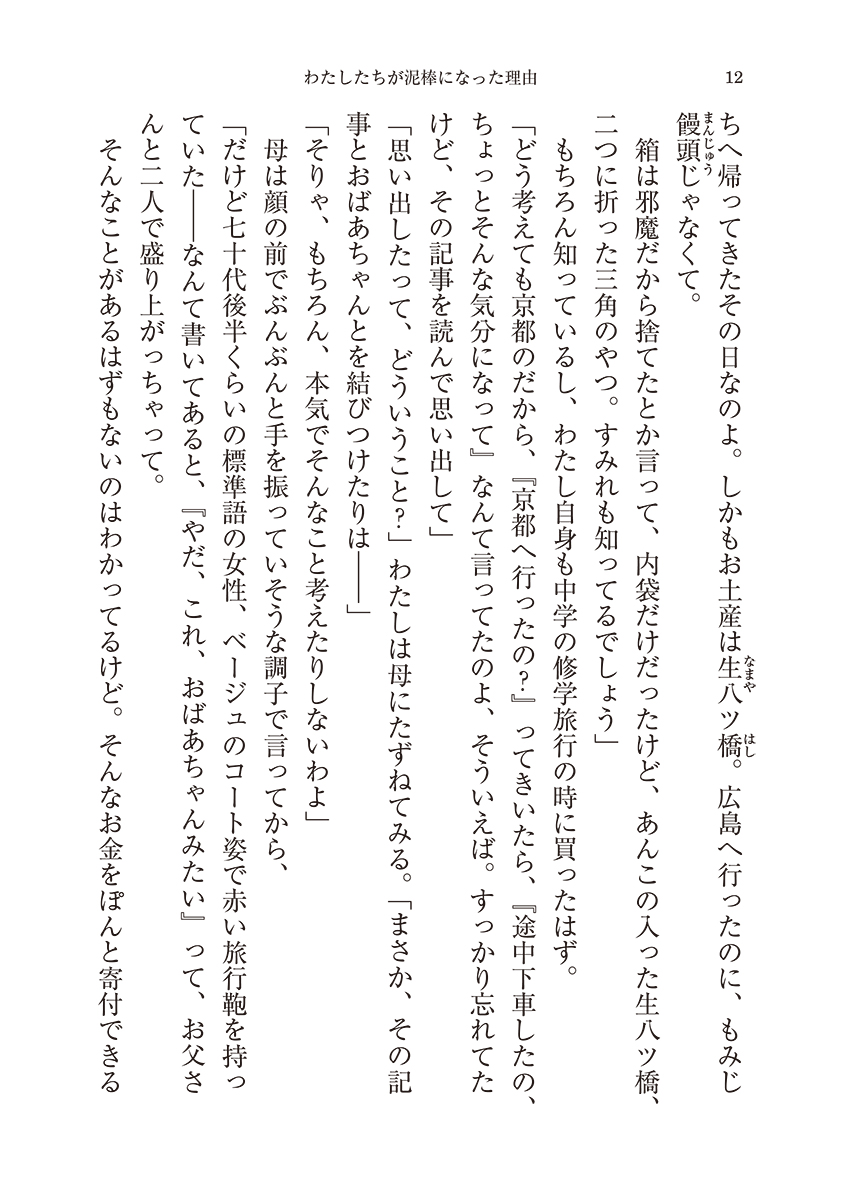 わたしたちが泥棒になった理由
12
ちへ帰ってきたその日なのよ。しかもお土産は生八ツ橋。広島へ行ったのに、もみじ
饅頭じゃなくて。
箱は邪魔だから捨てたとか言って、内袋だけだったけど、あんこの入った生八ツ橋、
二つに折った三角のやつ。すみれも知ってるでしょう」
もちろん知っているし、わたし自身も中学の修学旅行の時に買ったはず。
「どう考えても京都のだから、『京都へ行ったの?』ってきいたら、『途中下車したの、
ちょっとそんな気分になって』なんて言ってたのよ、そういえば。すっかり忘れてた
けど、その記事を読んで思い出して」
「思い出したって、どういうこと?」わたしは母にたずねてみる。「まさか、その記
事とおばあちゃんとを結びつけたりは――」
「そりゃ、もちろん、本気でそんなこと考えたりしないわよ」
母は顔の前でぶんぶんと手を振っていそうな調子で言ってから、
「だけど七十代後半くらいの標準語の女性、ベージュのコート姿で赤い旅行鞄を持っ
ていた――なんて書いてあると、『やだ、これ、おばあちゃんみたい』って、お父さ
んと二人で盛り上がっちゃって。
そんなことがあるはずもないのはわかってるけど。そんなお金をぽんと寄付できる